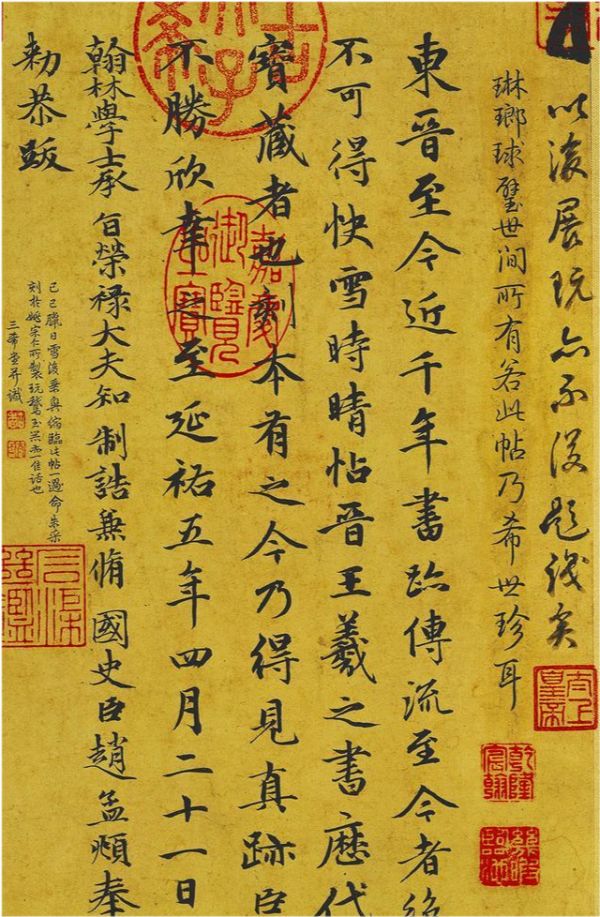 以後展玩亦不復題識矣
琳瑯球璧世間所有若此帖乃希世珍耳
太上皇帝
乾隆宸翰
東晉至今近千年書跡傳流至今者絕
不可得快雪時晴帖晉王羲之書歷代
寶藏者也刻本有之今乃得見真跡臣
不勝欣幸之至延祐五年四月二十一日
嘉慶御覽之寶
翰林學士承旨榮祿大夫知制誥兼脩國史臣趙孟頫奉
敕恭跋
己巳臘日雪後乘興臨此帖一過命朱采
刻於姚宗仁所製玩鵞玉器亦一佳話也
三希堂并識